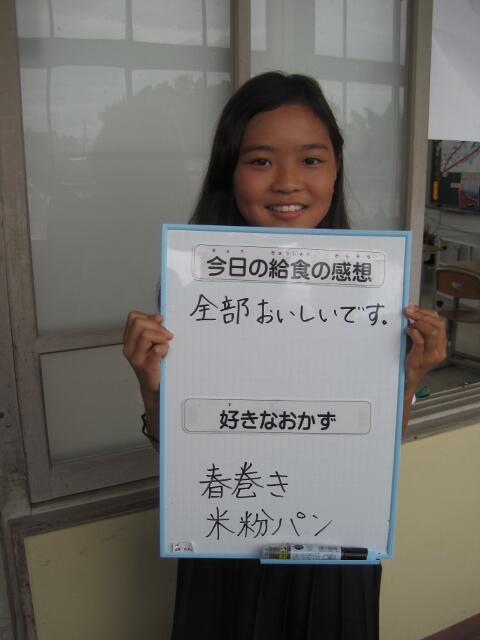 今日の給食の感想
全部おいしいです。
好きなおかず
春巻き
米粉パン